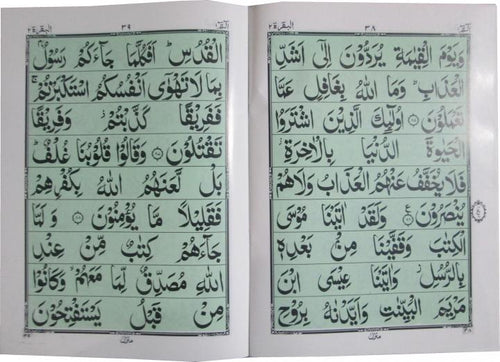 البقرة ٢
٣٨
وَيَوْمَ الْقِيٰمَةِ يُرَدُّوْنَ اِلٰٓى اَشَدِّ
الْعَذَابِ ؕ وَمَا اللّٰهُ بِغَافِلٍ عَمَّا
تَعْمَلُوْنَ ۝ اُولٰٓئِكَ الَّذِيْنَ اشْتَرَوُا
الْحَيٰوةَ الدُّنْيَا بِالْاٰخِرَةِ ؗ
فَلَا يُخَفَّفُ عَنْهُمُ الْعَذَابُ وَلَا هُمْ
يُنْصَرُوْنَ ۝ وَلَقَدْ اٰتَيْنَا مُوْسَى
الْكِتٰبَ وَقَفَّيْنَا مِنْۢ بَعْدِهٖ
بِالرُّسُلِ ؗ وَاٰتَيْنَا عِيْسَى ابْنَ
مَرْيَمَ الْبَيِّنٰتِ وَاَيَّدْنٰهُ بِرُوْحِ
منزل
البقرة ٢
٣٩
الْقُدُسِ ؕ اَفَكُلَّمَا جَآءَكُمْ رَسُوْلٌۢ
بِمَا لَا تَهْوٰٓى اَنْفُسُكُمُ اسْتَكْبَرْتُمْ ۚ
فَفَرِيْقًا كَذَّبْتُمْ ؗ وَفَرِيْقًا
تَقْتُلُوْنَ ۝ وَقَالُوْا قُلُوْبُنَا غُلْفٌ ؕ
بَلْ لَّعَنَهُمُ اللّٰهُ بِكُفْرِهِمْ
فَقَلِيْلًا مَّا يُؤْمِنُوْنَ ۝ وَلَمَّا
جَآءَهُمْ كِتٰبٌ مِّنْ عِنْدِ
اللّٰهِ مُصَدِّقٌ لِّمَا مَعَهُمْ ۙ وَكَانُوْا
مِنْ قَبْلُ يَسْتَفْتِحُوْنَ
منزل